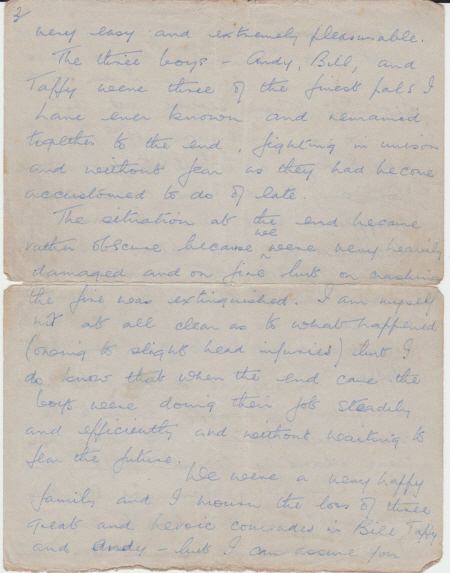 2/
very easy and extremely pleasurable.
The three boys – Andy, Bill, and
Taffy were three of the finest pals I
have ever known and remained
together to the end, fighting in unison
and without fear as they had become
accustomed to do of late.
The situation at the end became
rather obscure because we were very heavily
damaged and on fire but on crashing
the fire was extinguished. I am myself
not at all clear as to what happened
(owing to slight head injuries) but I
do know that when the end came the
boys were doing their job steadily
and efficiently and without waiting to
fear the future.
We were a very happy
family and I mourn the loss of three
great and heroic comrades in Bill Taffy
and Andy – but I can assure you